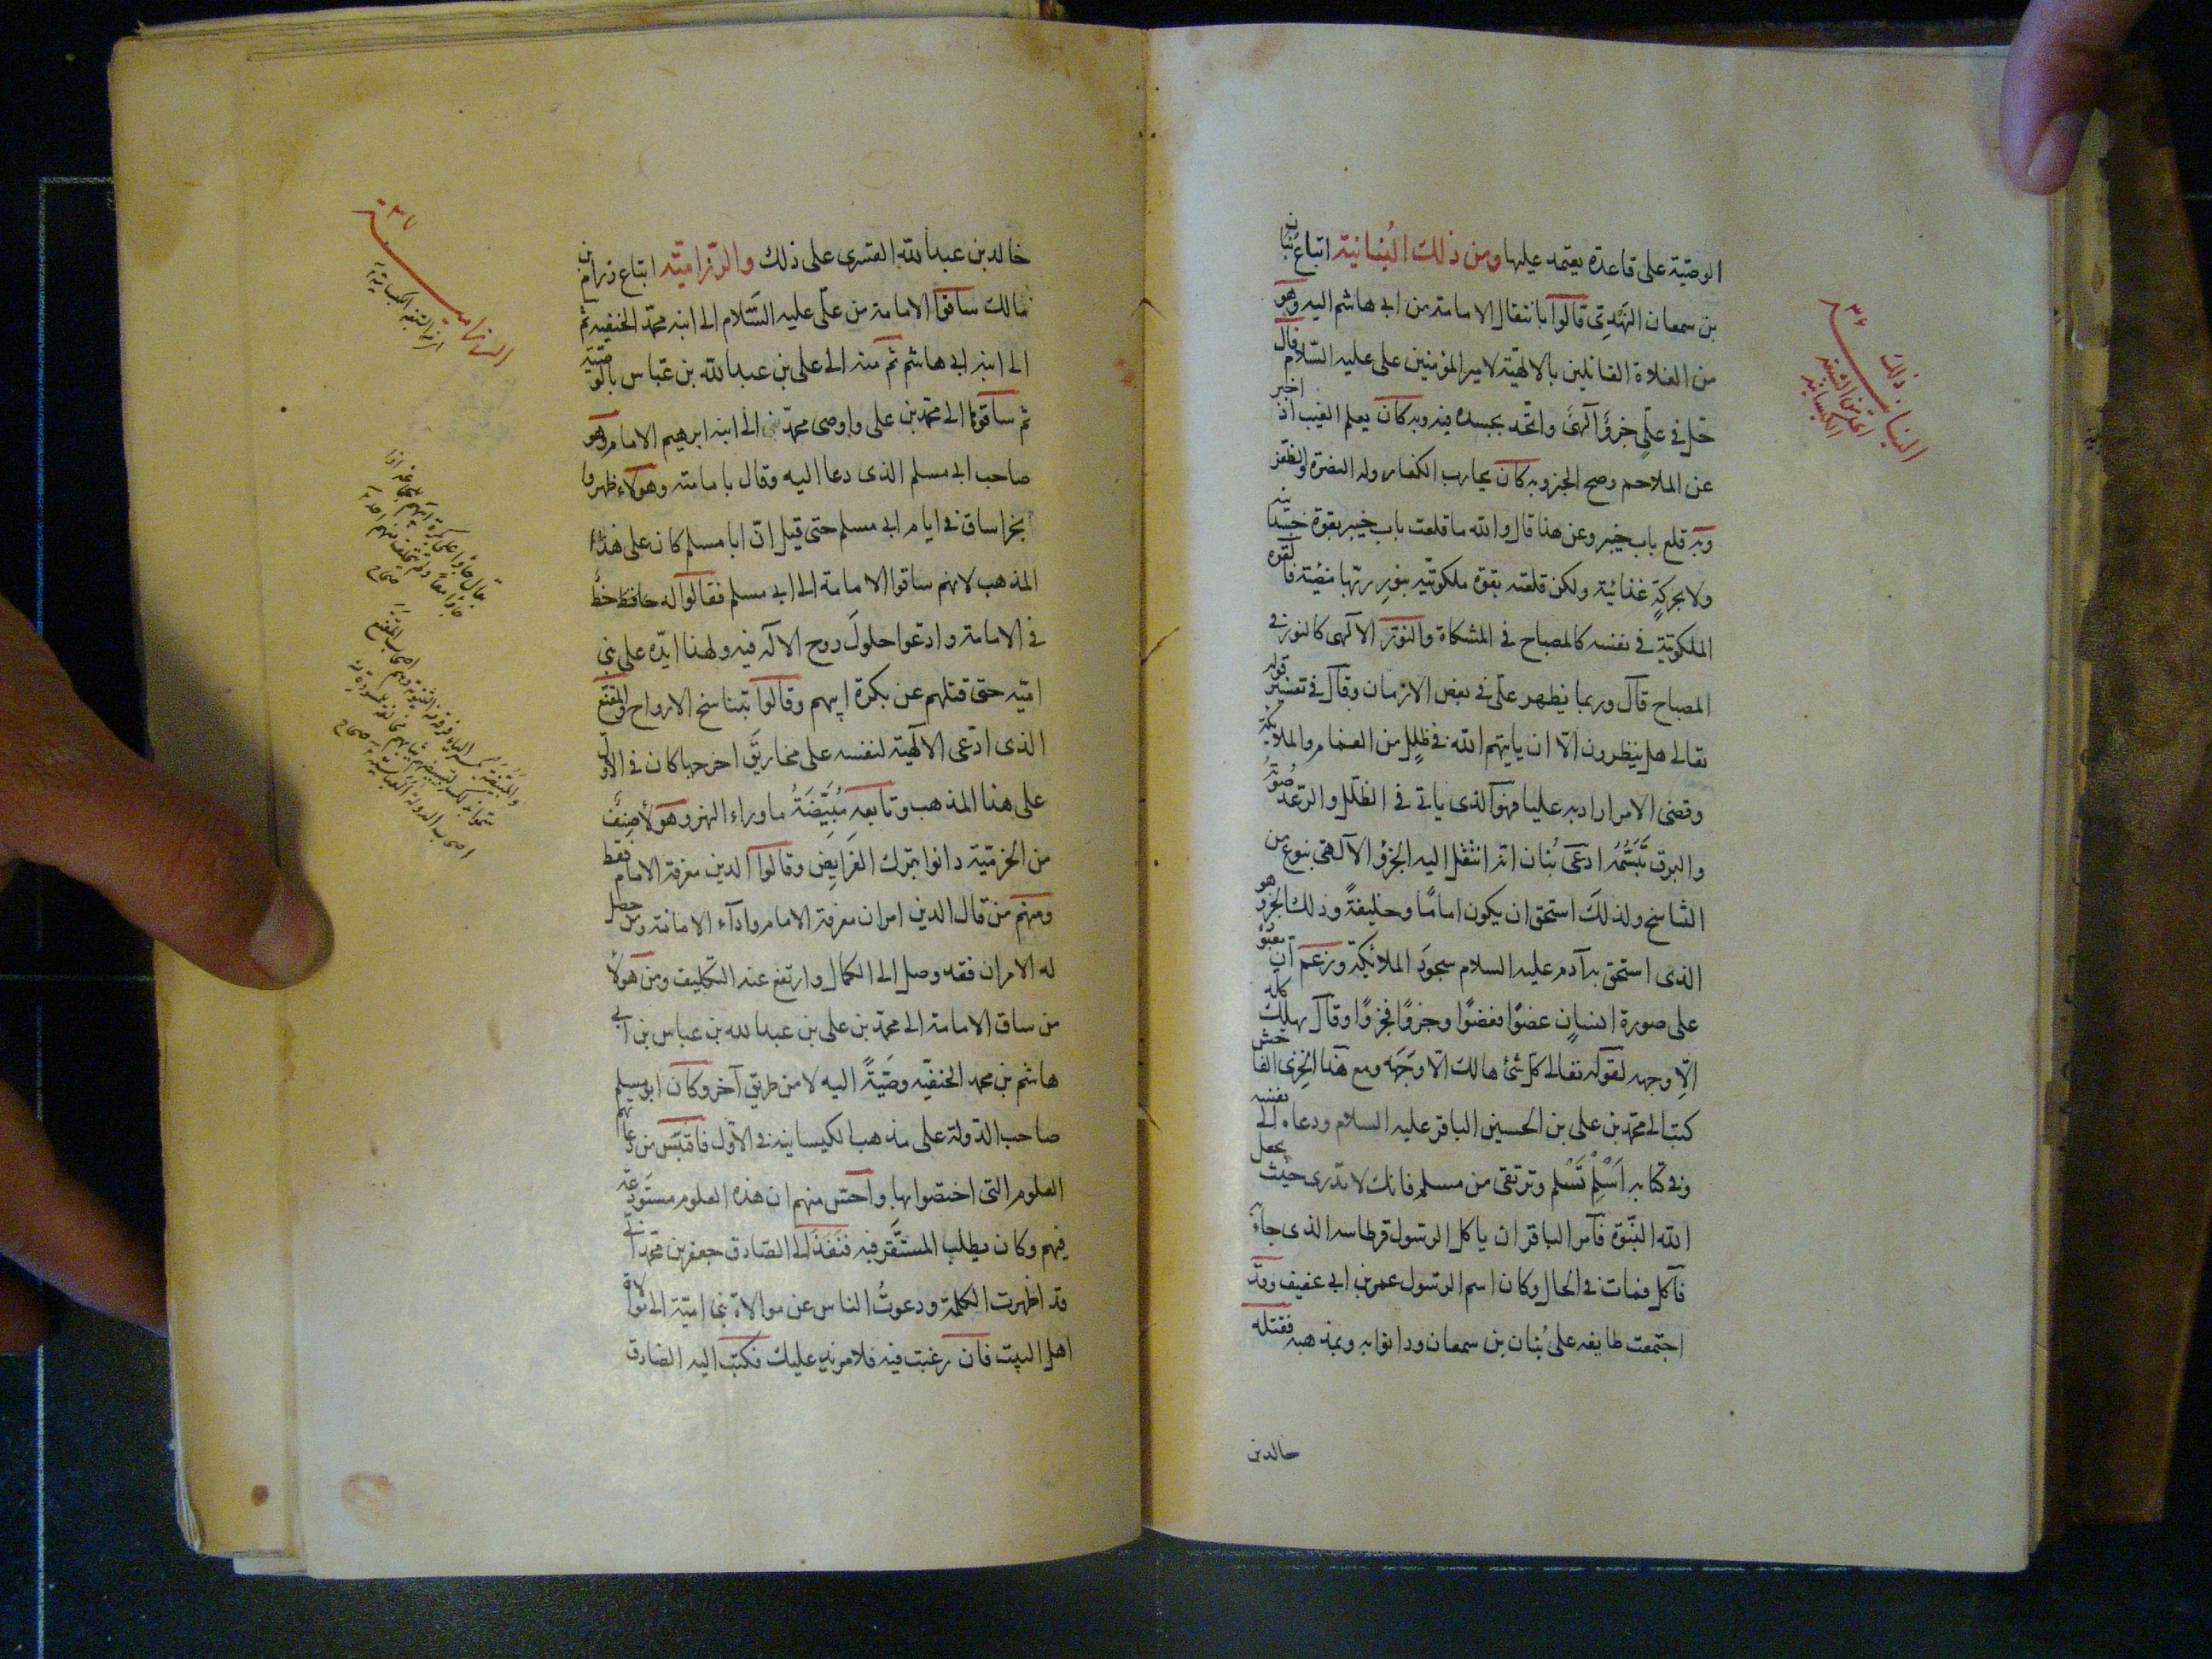 الوصية على قاعدة يعتمد عليها ومن ذلك البُنانية اتباع بُنان
بن سمعان النَهْدى قالوا بانتقال الامامة من ابى هاشم اليه وهو
من الغلاة القائلين بالالهيّة لامير المؤمنين على عليه السّلام قال
حَلّ فى علىّ جزؤٌ آلهىٌ واتّحد بجسده فيه وبه كان يعلم الغيب اذ اخبر
عن الملاحم وصح الخبر وبه كان يحارب الكفار وله النصرة والظفر
وبه قلع باب خيبر وعن هذا قال والله ما قلعت باب خيبر بقوة جسدانيه
ولا بحركةٍ غذائيّة ولكن قلعته بقوة ملكوتيّه بنورِ ربّها مضيّئة فالقوه
الملكوتيّة فى نفسه كالمصباح فى المشكاة والنور الآلهى كالنور فى
المصباح قال وربما يظهر علىّ فى بعض الازمان وقال فى تفسير قوله
تعالى هل ينظرون الّا ان ياتيهم الله فى ظللٍ من الغمام والملائكة
وقضى الامر اراد به عليا فهو الذى ياتى فى الظلل والرّعد صوته
والبرق تَبَسُّمُه ادعى بُنان انه انتقل اليه الجزؤ الآلهى بنوع من
التّناسخ ولذلك استحق ان يكون امامًا وخليفةً وذلك الجزؤ هو
الذى استحق به آدم عليه السلام سجودَ الملائكة وزعم ان معبوده
على صورة انسانٍ عضوًا فعضوًا وجزوًا فجزوًا وقال يهلك كله
الّا وجهه لقوله تعالى كل شئ هالك الّا وَجْهَه ومع هذا الخزى الفاحش
كتب الى محمّد بن على بن الحسين الباقر عليه السلام ودعاه الى نفسه
وفى كتابه اَسْلِمْ تَسْلم وترتقى من مسلم فانك لا تدرى حيث يجعل
الله النبّوة فآمر الباقر ان ياكل الرسول قرطاسه الذى جآء
فآكل فمات فى الحال وكان اسم الرسول عمر بن ابى عفيف وقد
اجتمعت طايفه على بُنان بن سمعان ودانوا به وبمذهبه فقتله
خالد بن
البنا ٣٦
ذلك
خالد بن عبدالله القسرى على ذلك والرّزاميّه اتباع رزام بن
مالك ساقوا الامامة من علّى عليه السَّلام الى ابنه محمّد الحنفيه ثم
الى ابنه ابى هاشم ثم منه الى على بن عبدالله بن عبّاس بالوصيّة
ثم ساقوها الى محمّد بن على واوصى محمّد الى ابنه ابرهيم الامام وهو
صاحب ابى مسلم الذى دعا اليه وقال بامامته وهولاء ظهروا
بخراسان فى ايام ابى مسلم حتى قيل انّ ابا مسلم كان على هذا
المذهب لانهم ساقوا الامامة الى ابى مسلم فقالوا له حظّ
فى الامامة وادّعوا حلولَ روح الآله فيه ولهذا ايّده على بنى
اميّه حتى قتلهم عن بكرة ابيهم وقالوا بتناسخ الارواح والمقنّع
الذى ادّعى الالهيّة لنفسه على مخاريق اخرجها كان فى الاول
على هذا المذهب وتابعه مُبيّضَةُ ما وراء النهر وهولأ صِنفٌ
من الخرميّة دانوا بترك الفَرايِض وقالوا الدين معرفة الامام فقط
ومنهم من قال الدين امران معرفة الامام وادآء الامانة ومن حصل
له الامران فقد وصل الى الكمال وارتفع عنه التكليف ومن هولأ
من ساق الامامة الى محمّد بن على بن عبدالله بن عباس بن ابى
هاشم بن محمد الحنفيّه وصيّةً اليه لا من طريق آخر وكان ابومسلم
صاحب الدّولة على مذهب الكيسانيه فى الاوّل فاقتبس من دعاتهم
العلوم التى اختصّوا بها واحسّ منهم ان هذه العلوم مستودعة
فيهم وكان يطلب المستقَر فيه فنَفَذَ الى الصّادق جعفر بن محمّد انّى
قد اظهرت الكلمة ودعوتُ الناس عن موالاة بنى اميّة الى موالاة
اهل البيت فان رغبت فيه فلا مزيد عليك فكتب اليه الصّادق
٣٧
يقال جاؤا على بكرة ابيهم
صحاح